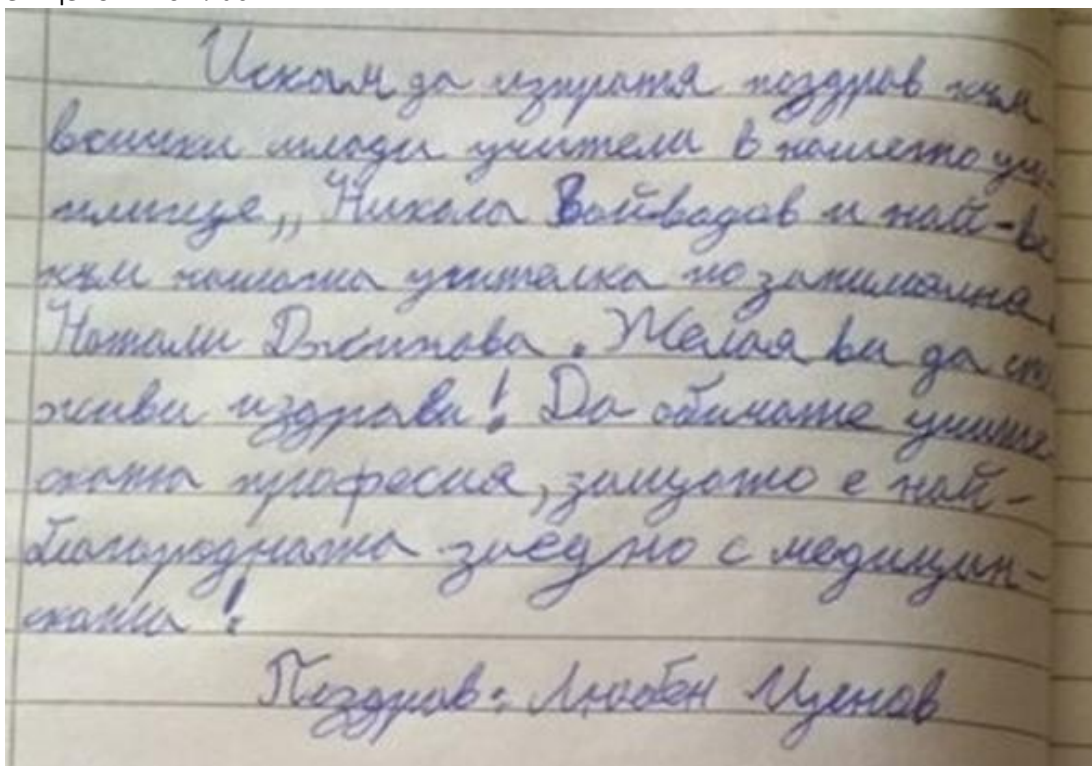 Искам да изпратя поздрав към
всички млади учители в нашето учи-
лище,, Никола Войводов и най-ве
към нашата учителка по занималня
Натали Джихова. Желая ви да сте
живи и здрави! Да обичате учите
ската професия, защото е най-
благородната заедно с медицин-
ската!
Поздрав: Любен Ценов